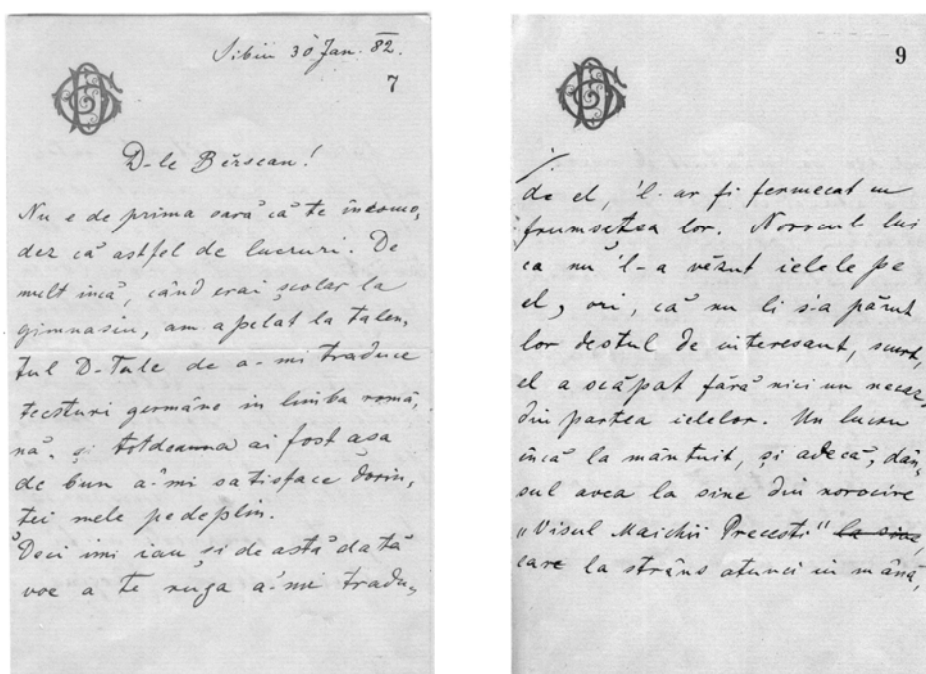 Sibiiu 30 Jan. 82.
7
D-le Bêrsean!
Nu e de prima oară că te incomo,
dez că astfel de lucruri. De
mult incă, când erai școlar la
gimnasiu, am apelat la talen,
tul D-Tale de a-mi traduce
tecsturi germâne in limba romă,
nă. și totdeauna ai fost așa
de bun a-mi satisface dorin,
ței mele pedeplin.
Deci imi iau și de astă dată
voe a te ruga a-mi tradu,
9
de el, 'l-ar fi fermecat cu
frumsețea lor. Norocul lui
ca nu 'l-a vĕzut ielele pe
el, ori, că nu li s'a părut
lor destul de interesant, scurt,
el a scăpat fără nici un necaz,
din partea ielelor. Un lucru
incă la mântuit, și adecă, dân,
sul avea la sine din norocire
„Visul Maichii Precesti" la sine,
care la strâns atunci in mână,